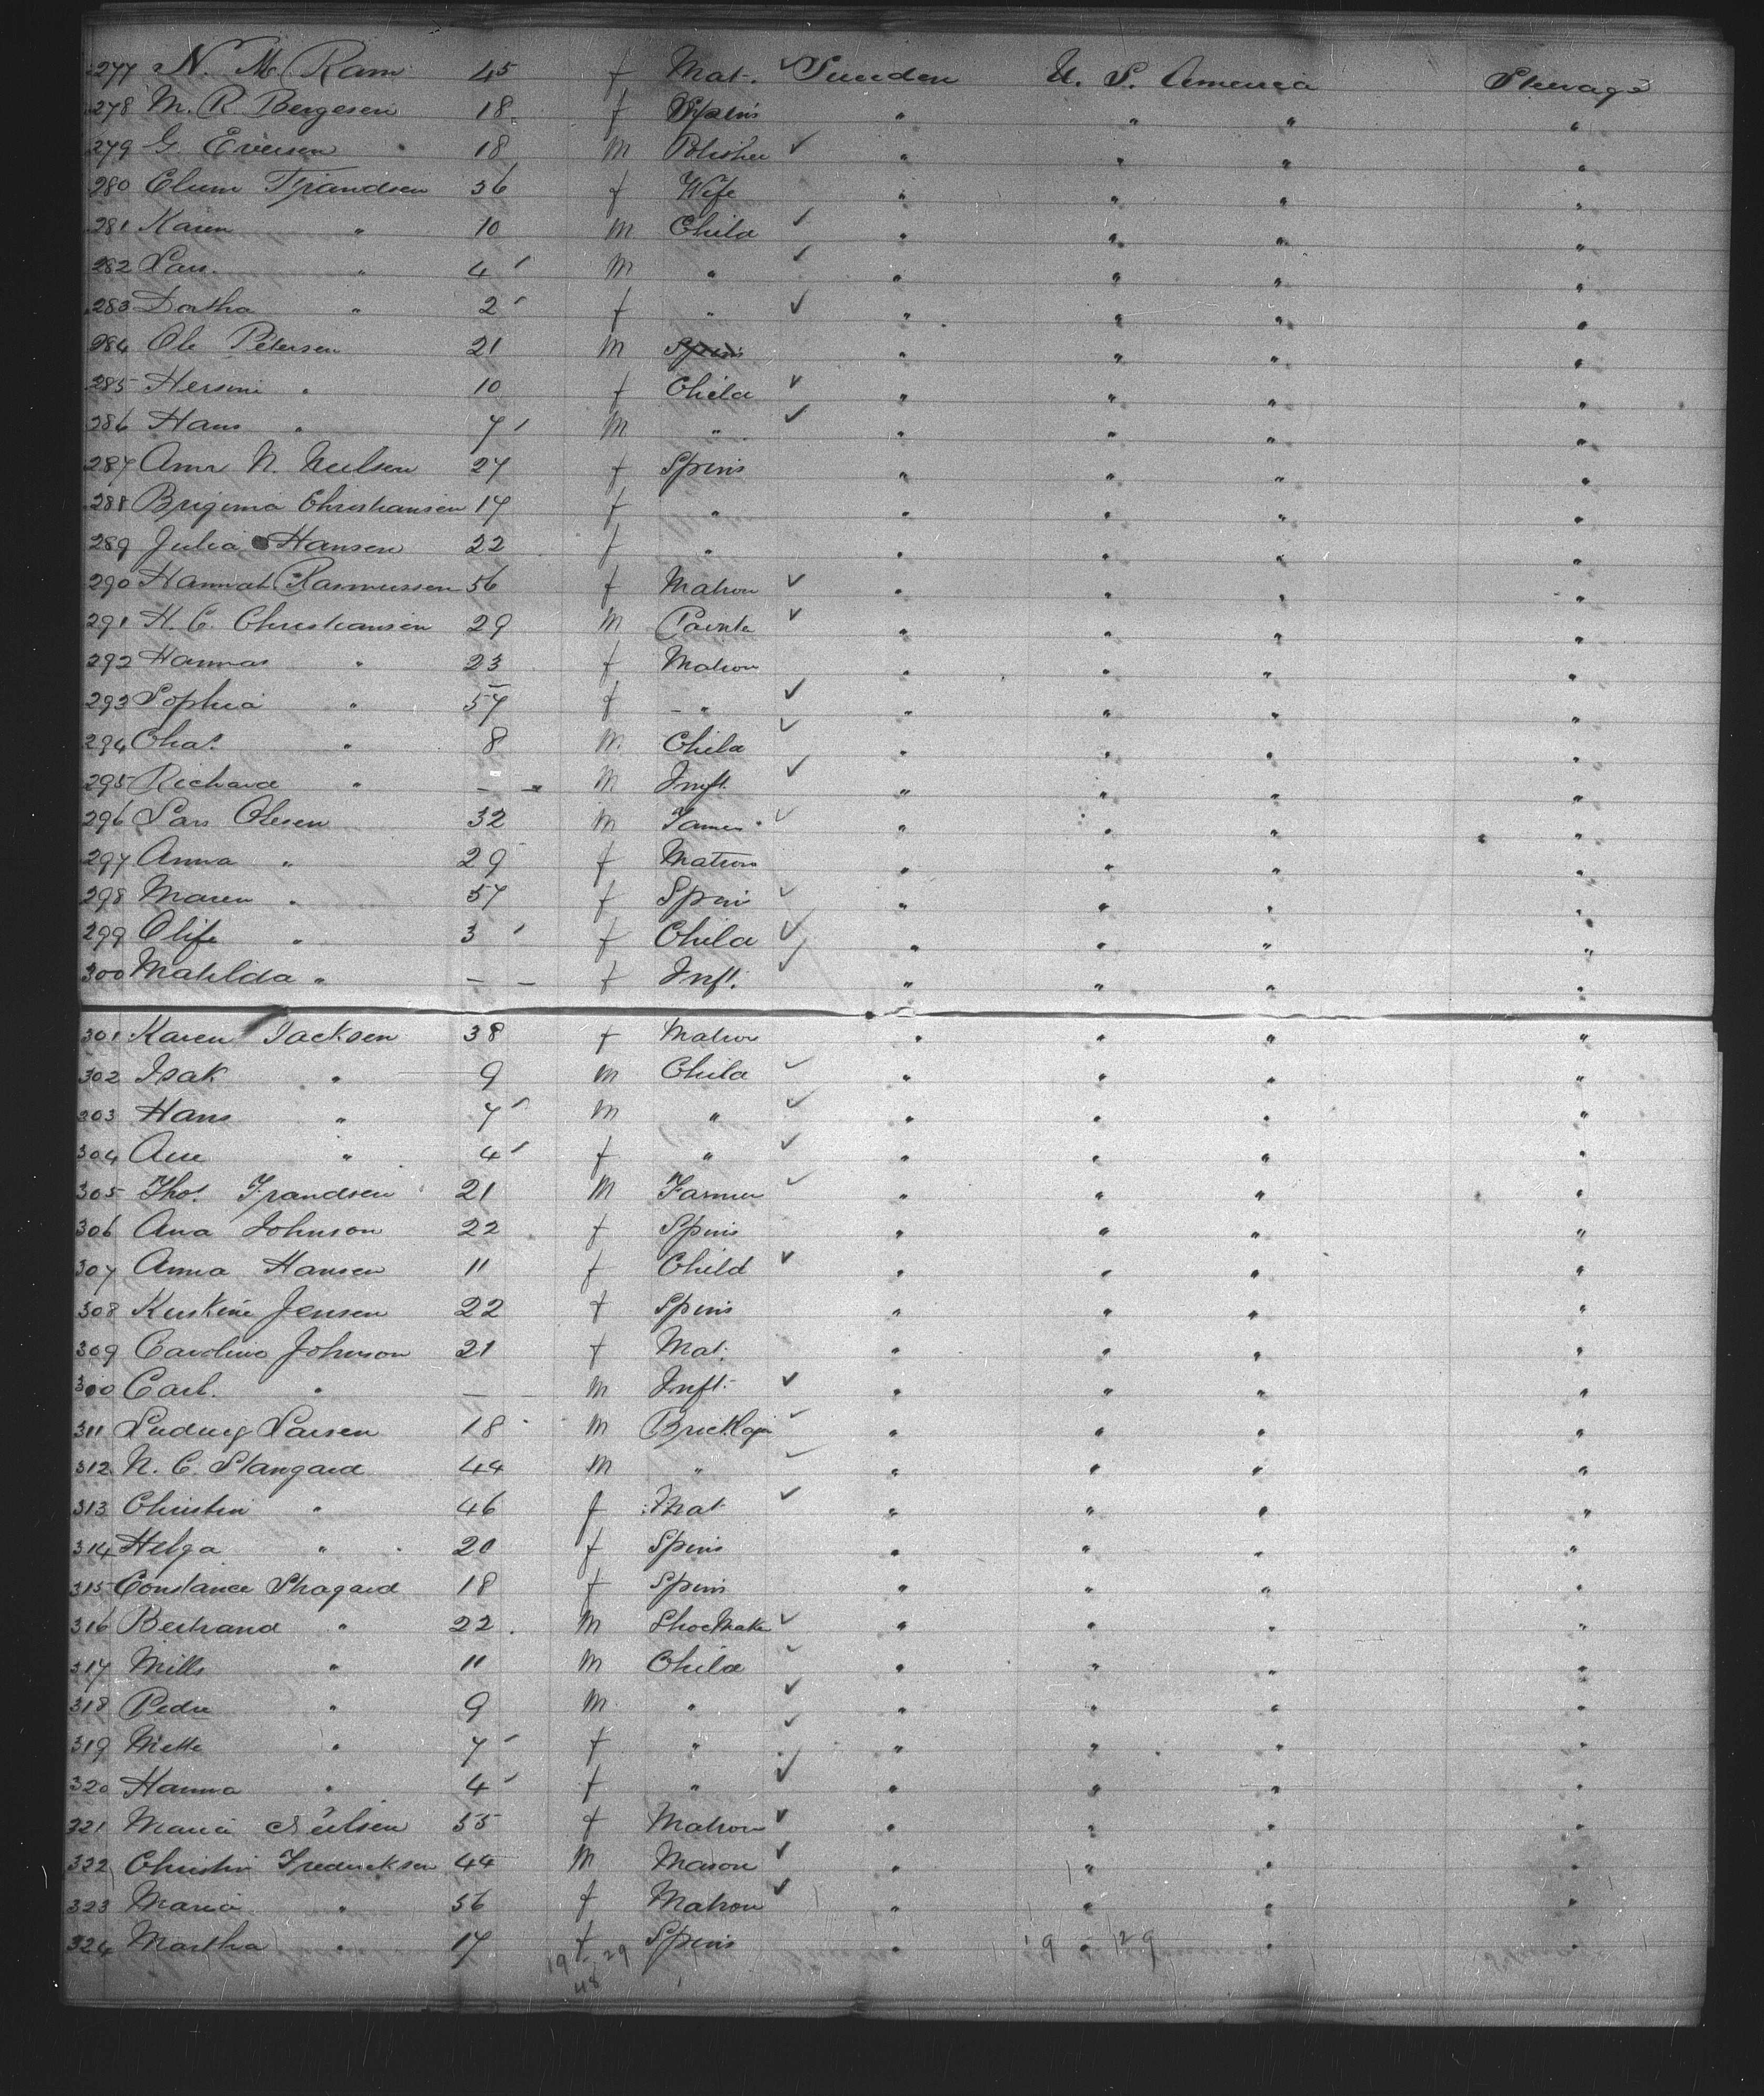 277 N. M. Ram 45 f Mat. ✓ Sweden U. S. America Steerage
278 M. R. Bergesen 18 f Spins " " " "
279 G. Eversen 18 M Polisher ✓ " " " "
280 Elum Frandsen 36 f Wife " " " "
281 Karen " 10 M Child ✓ " " " "
282 Lars " 4 M " ✓ " " " "
283 Dortha " 2 f " ✓ " " " "
284 Ole Petersen 21 M Spins " " " "
285 " 10 f Child ✓ " " " "
286 Hans " 7 M " ✓ " " " "
287 Ama N. Neilsen 27 f Spins " " " "
288 Christiansen 17 f " " " " "
289 Julia Hansen 22 f " " " " "
290 Hannah Rasmussen 56 f Matron ✓ " " " "
291 H. C. Christiansen 29 M ✓ " " " "
292 Hannas " 23 f Matron " " " "
293 Sophia " 57 f – " ✓ " " " "
294 Chas. " 8 M Child ✓ " " " "
295 Richard " – – M Inft. ✓ " " " "
296 Lars Olesen 32 M ✓ " " " "
297 Anna " 29 f Matron " " " "
298 Maren " 57 f Spins ✓ " " " "
299 Olife " 3 f Child ✓ " " " "
300 Matilda " – – f Inft. ✓ " " " "
301 Karen Jacksen 38 f Matron " " " "
302 Isak " 9 M Child ✓ " " " "
303 Hans " 7 M " ✓ " " " "
304 Ane " 4 f " ✓ " " " "
305 Thos. Frandsen 21 M Farmer ✓ " " " "
306 Ana Johnson 22 f Spins " " " "
307 Anna Hansen 11 f Child ✓ " " " "
308 Kirstine Jensen 22 f Spins " " " "
309 Carolina Johnson 21 f Mat. " " " "
300 Carl. " – M Inft. ✓ " " " "
311 Ludwig Larsen 18 M Bricklayer ✓ " " " "
312 N. C. Stangard 44 M " ✓ " " " "
313 Christin " 46 f Mat ✓ " " " "
314 Helga " 20 f Spins " " " "
315 Constance Shagard 18 f Spins " " " "
316 Bertrand " 22 M ShoeMaker ✓ " " " "
317 Mills " 11 M Child ✓ " " " "
318 Peder " 9 M " ✓ " " " "
319 Mette " 7 f " ✓ " " " "
320 Hanna " 4 f " ✓ " " " "
321 Maria Neilsen 55 f Matron ✓ " " " "
322 Christin Fredericksen 44 M Mason ✓ " " " "
323 Maria " 56 f Matron ✓ " " " "
324 Martha " 17 f Spins " " " "
19 29 19 29
48